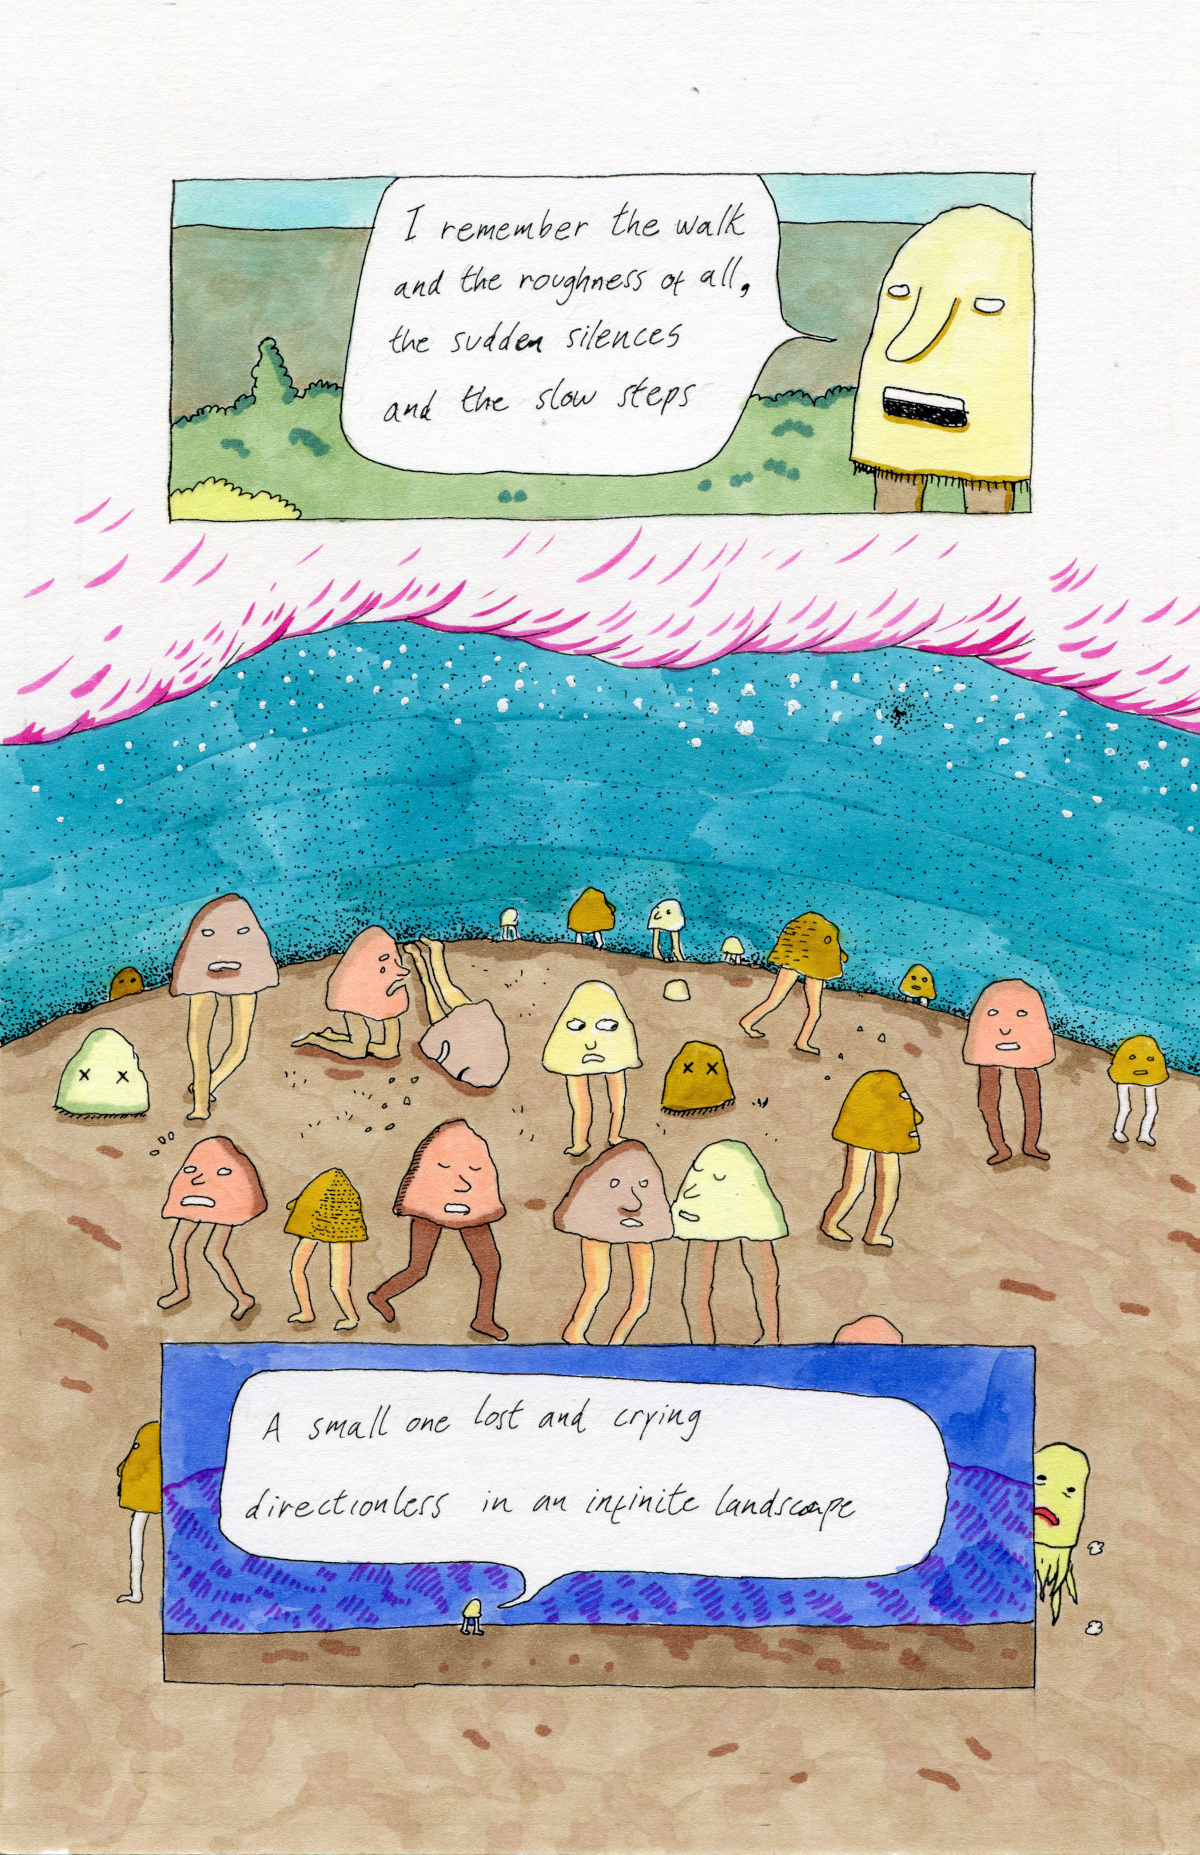 I remember the walk
and the roughness of all,
the sudden silences
and the slow steps
A small one lost and crying
directionless in an infinite landscape